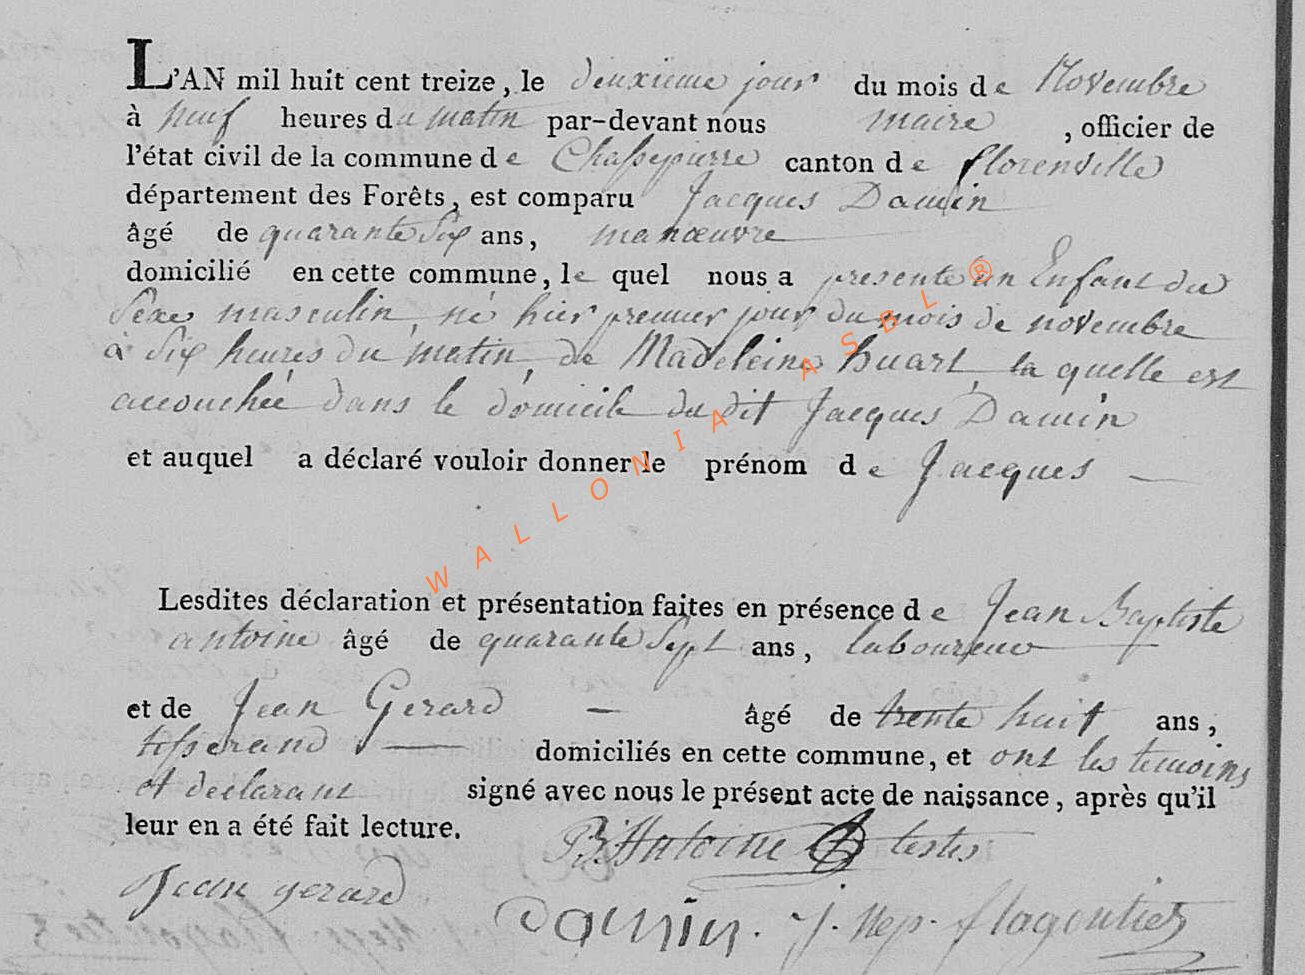 L'AN mil huit cent treize, le deuxieme jour du mois de Novembre
à neuf heures du matin par-devant nous maire, officier de
l'état civil de la commune de Chassepierre canton de florenville
département des Forêts, est comparu Jacques Damin
âgé de quarante six ans, manœuvre
domicilié en cette commune, le quel nous a presenté un Enfant du
Sexe masculin, né hier premier jour du mois de novembre
à six heures du matin, de Madeleine huart, la quelle est
accouchée dans le domicile du dit Jacques Damin
et auquel a déclaré vouloir donner le prénom de Jacques
Lesdites déclaration et présentation faites en présence de Jean Baptiste
antoine âgé de quarante sept ans, laboureur
et de Jean Gerard âgé de trente huit ans,
tisserand domiciliés en cette commune, et ont les temoins
et declarant signé avec nous le présent acte de naissance, après qu'il
leur en a été fait lecture.
B. Antoine testis
Jean gerard
Damin. J. Nep. flagontier
WALLONIA ASBL ®